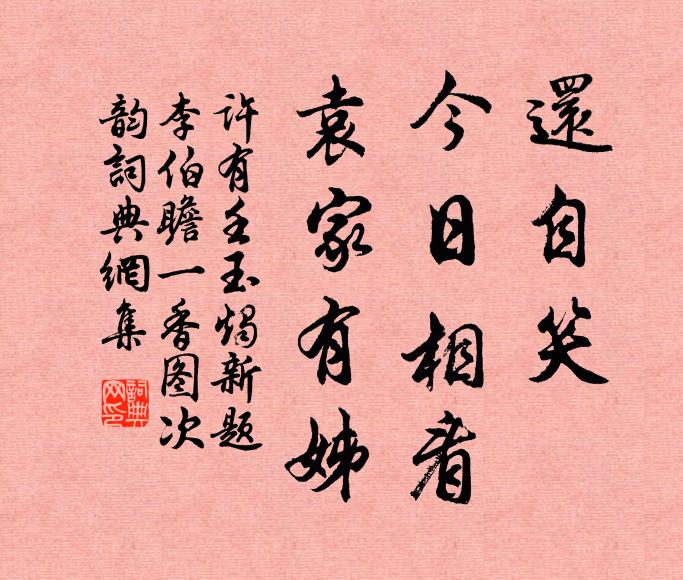 還自笑
今日相看
袁家有姊
許有壬玉燭新題
李伯瞻一香图次
韵詞典網集
詞典网印